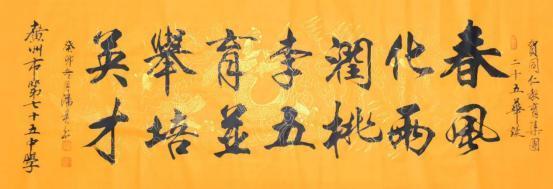 賀同仁教育集團
二十五華誕
春風
化雨
潤桃
李五
育並
舉培
英才
癸卯
廣州市第七十五中學